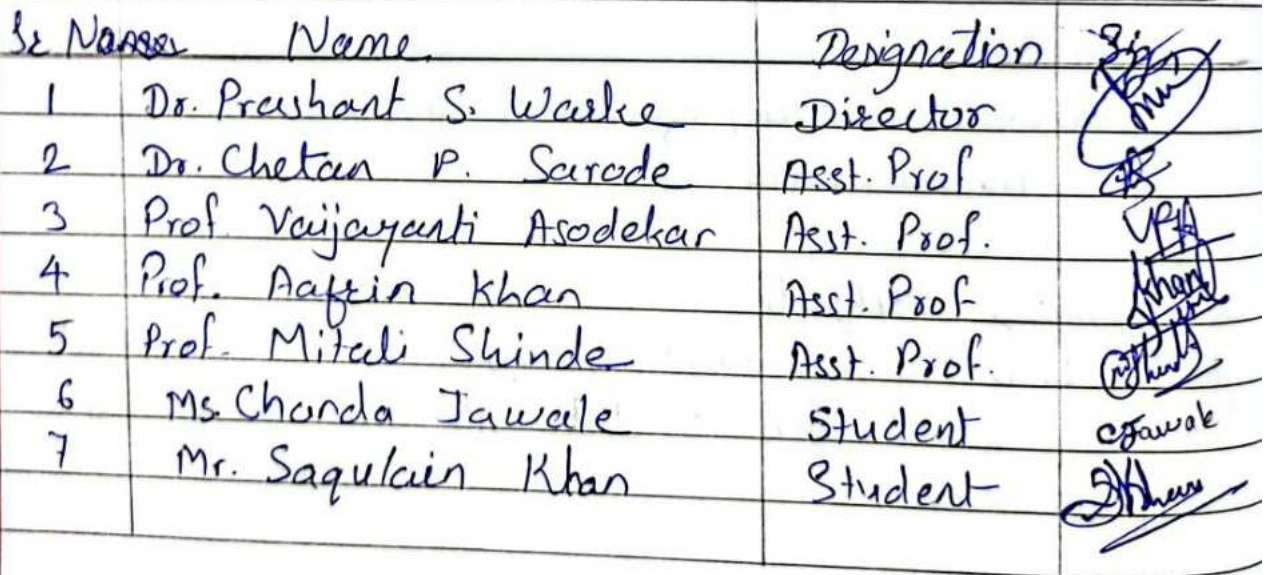 Sr Name Designation Sign
1 Dr. Prashant S. Warke Director
2 Dr. Chetan P. Sarode Asst. Prof
3 Prof Vaijayanti Asodekar Asst. Prof. VPA
4 Prof. Aafrin Khan Asst. Prof Khan
5 Prof. Mitali Shinde Asst. Prof.
6 Ms. Chanda Jawale Student CJawale
7 Mr. Saqulain Khan Student